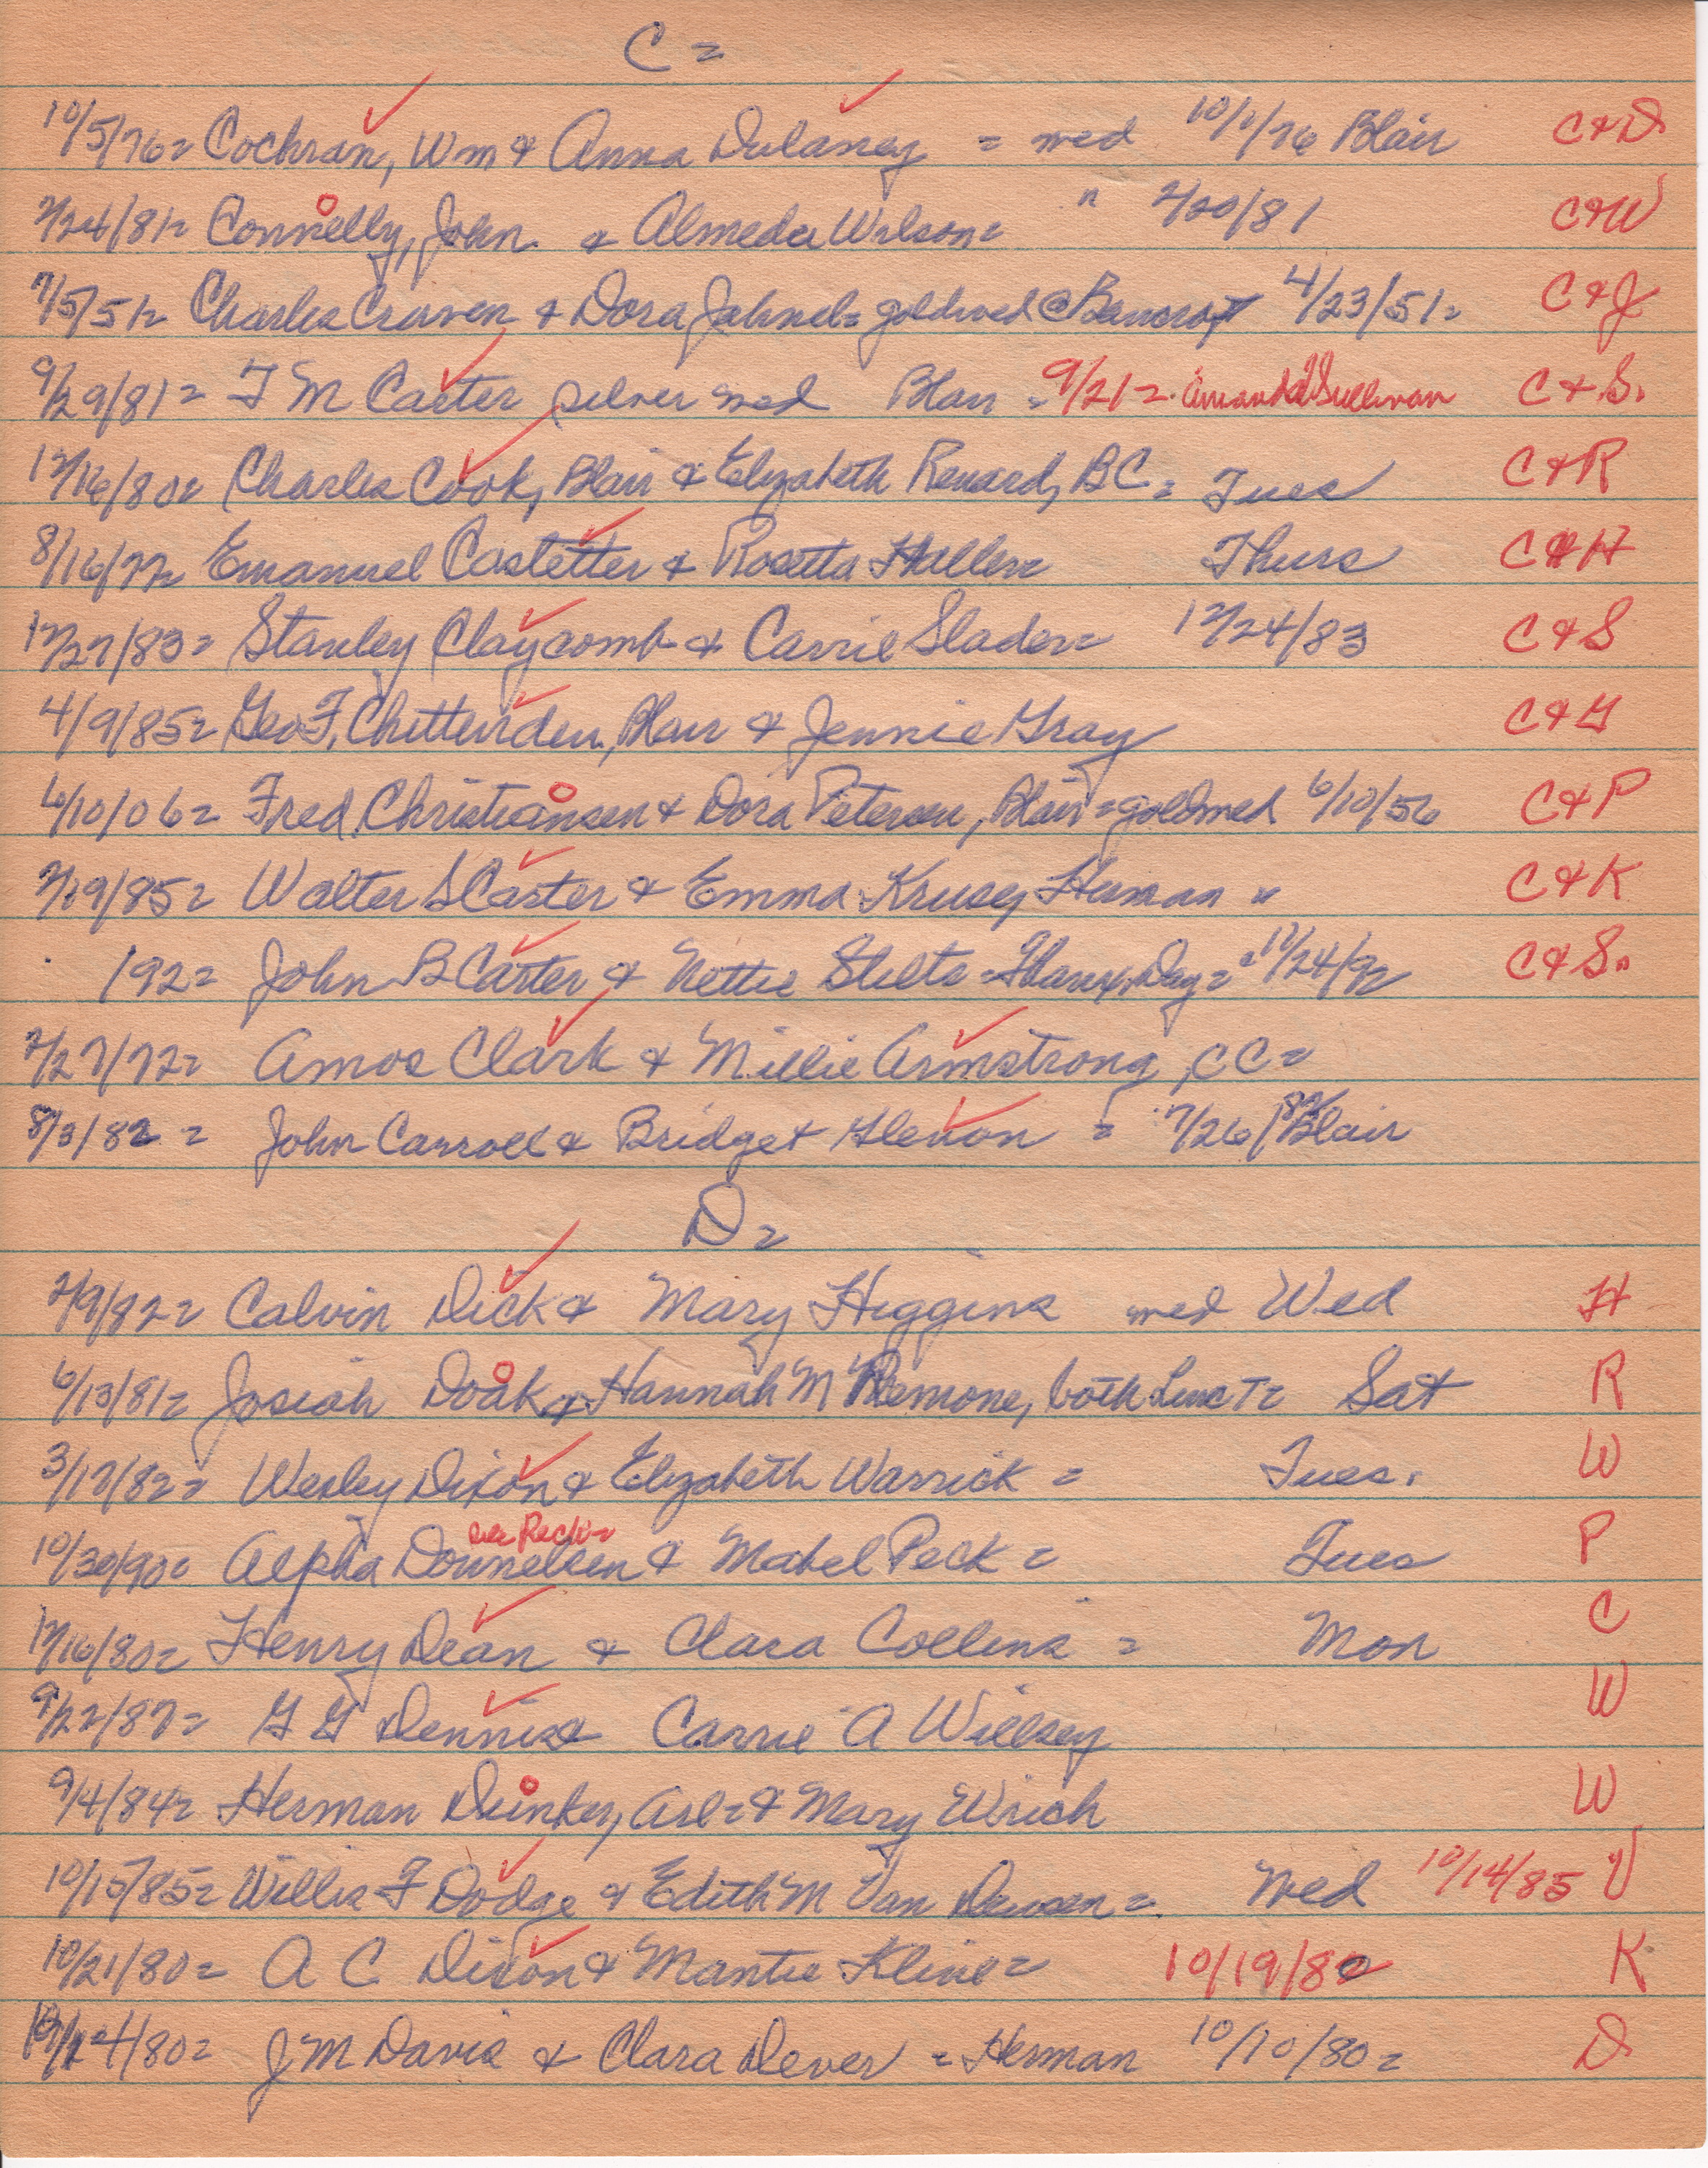 C =
10/5/76= Cochran, Wm & Anna Dulaney = wed 10/1/76 Blair C & D
2/24/81= Connelly, John & Almeda Wilson= " 2/20/81 C & W
7/5/51= Charles Craven & Dora Jahnel= goldwed @ Bancroft 4/23/51= C & J
9/29/81= T M Carter silver wed Blair = 9/21= Amanda Sullivan C & S.
12/16/80= Charles Cook, Blair & Elizabeth Renard, BC= Tues C & R
8/16/77= Emanuel Castetter & Rosetta Haller= Thurs C & H
12/27/83= Stanley Claycomb & Carrie Slader= 12/24/83 C & S
4/9/85= Geo F. Chittenden, Blair & Jennie Gray C & G
6/10/06= Fred Christiansen & Dora Petersen, Blair = goldwed 6/10/56 C & P
2/19/85= Walter S Carter & Emma Krusey Herman " C & K
192= John B Carter & Nettie Stilts = Thanx. Day = "12/24/92 C & S"
2/27/72= Amos Clark & Millie Armstrong, CC=
8/3/82 = John Carroll & Bridget Glenon = 7/26/82 Blair
D =
2/9/82= Calvin Dick & Mary Higgins wed Wed H
6/13/81= Josiah Doak & Hannah M Remone, both Linc T= Sat R
3/17/82= Wesley Dixon & Elizabeth Warrick = Tues. W
see Peck=
10/30/90= Alpha Donnelsen & Mabel Peck = Tues P
12/16/80= Henry Dean & Clara Collins = Mon C
9/22/87= G G Dennis & Carrie A Willsey W
9/4/84= Herman Dunker, Arl= & Mary Wrich W
10/15/85= Willis F Dodge & Edith M Van Deusen = Wed 10/14/85 V
10/21/80= A C Dixon & Mantie Kline= 10/19/80 K
/80= J M Davis & Clara Dever = Herman 10/10/80= D